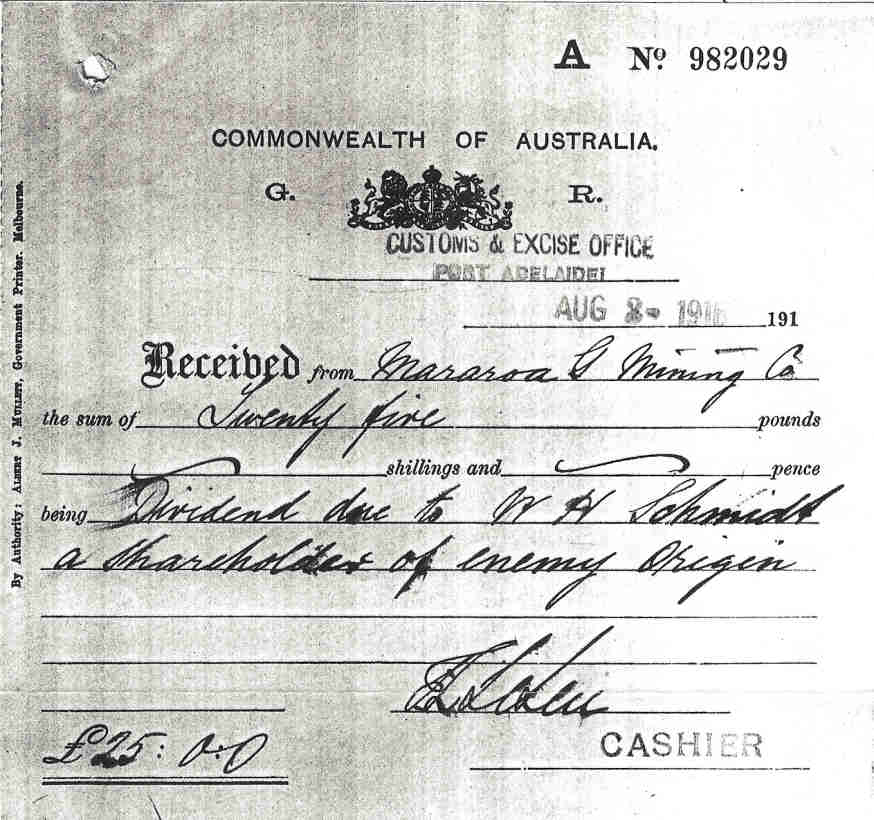 A Nº 982029
COMMONWEALTH OF AUSTRALIA.
G. R.
CUSTOMS & EXCISE OFFICE
PORT ADELAIDE
AUG 8- 1916 191
Received from Mararoa G Mining Co
the sum of Twenty five pounds
shillings and pence
being Dividend due to W H Schmidt
a shareholder of enemy origin
£25:0:0
CASHIER
By Authority: ALBERT J. MULLETT, Government Printer. Melbourne.